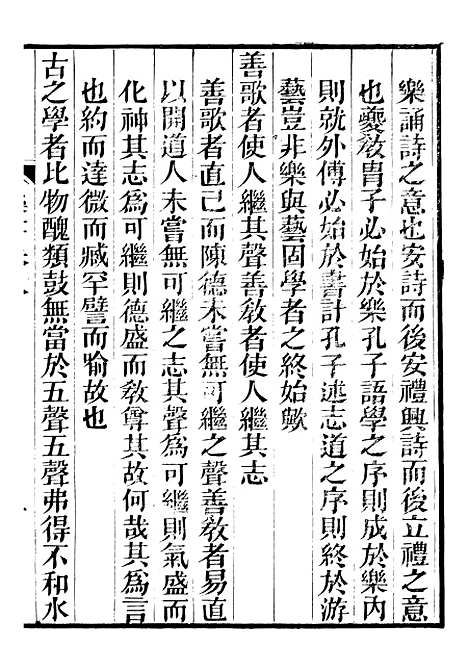 樂誦詩之意也安詩而後安禮興詩而後立禮之意
也夔敎胄子必始於樂孔子語學之序則成於樂内
則就外傅必始於書計孔子述志道之序則終於游
藝豈非樂與藝固學者之終始歟
善歌者使人繼其聲善敎者使人繼其志
善歌者直己而陳德未嘗無可繼之聲善敎者易直
以開道人未嘗無可繼之志其聲爲可繼則氣盛而
化神其志爲可繼則德盛而敎尊其故何哉其爲言
也約而達微而臧罕譬而喻故也
古之學者比物醜類鼓無當於五聲五聲弗得不和水